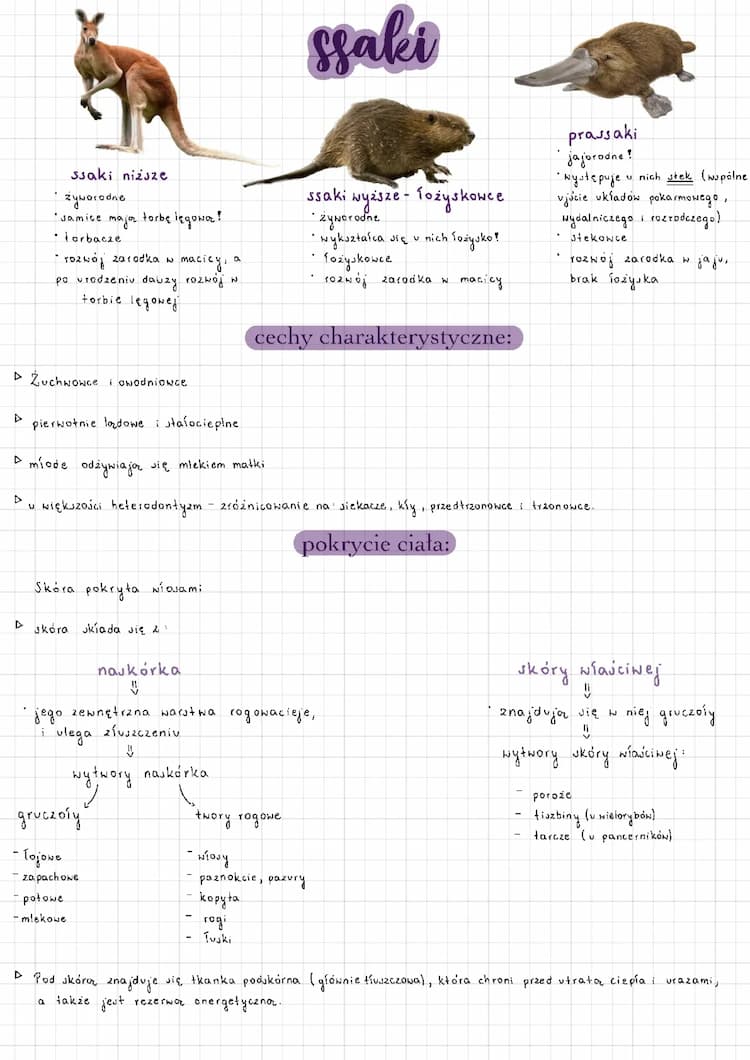 ssaki
ssaki niższe
• żyworodne
• samice mają torbę lęgową!
• torbacze
• rozwój zarodka w macicy, a
po urodzeniu dalszy rozwój w
torbie lęgowej
ssaki wyższe - łożyskowce
• żyworodne
• wykształca się u nich łożysko!
• łożyskowce
• rozwój zarodka w macicy
prassaki
• jajorodne!
• występuje u nich stek (wspólne
ujście układów pokarmowego,
wydalniczego i rozrodczego)
• stekowce
• rozwój zarodka w jaju,
brak łożyska
cechy charakterystyczne:
▷ Żuchwowce i owodniowce
▷ pierwotnie lądowe i stałocieplne
▷ młode odżywiają się mlekiem matki
▷ u większości heterodontyzm - zróżnicowanie na: siekacze, kły, przedtrzonowce i trzonowce.
pokrycie ciała:
Skóra pokryta włosami
▷ skóra składa się z:
naskórka
⇓
• jego zewnętrzna warstwa rogowacieje,
i ulega złuszczeniu
⇓
wytwory naskórka
gruczoły
- łojowe
- zapachowe
- potowe
- mlekowe
twory rogowe
- włosy
- paznokcie, pazury
- kopyta
- rogi
- łuski
skóry właściwej
⇓
• znajdują się w niej gruczoły
⇓
wytwory skóry właściwej:
- poroże
- fiszbiny (u wielorybów)
- tarcze (u pancerników)
▷ Pod skórą znajduje się tkanka podskórna (głównie tłuszczowa), która chroni przed utratą ciepła i urazami,
a także jest rezerwą energetyczną.